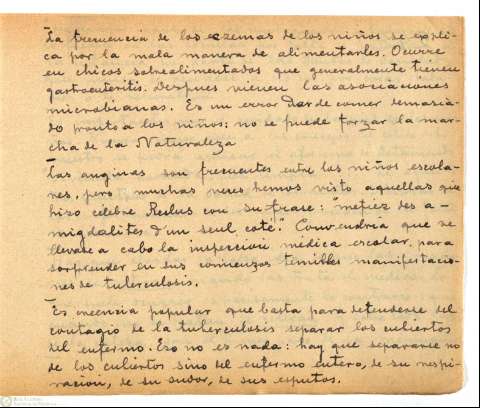 La frecuencia de los eczemas de los niños se expli-
ca por la mala manera de alimentarles. Ocurre
en chicos sobrealimentados que generalmente tienen
gastroenteritis. Despues vienen las asociaciones
microbianas. Es un error dar de comer demasia-
do pronto a los niños: no se puede forzar la mar-
cha de la Naturaleza
Las anginas son frecuentes entre los niños escola-
res, pero muchas veces hemos visto aquellas que
hizo célebre Reclus con su frase: "mefiez des a-
migdalites d'un seul coté." Convendria que se
llevase a cabo la inspeccion médica escolar, para
sorprender en sus comienzos temibles manifestacio-
nes de tuberculosis.
Es creencia popular que basta para defenderse del
contagio de la tuberculosis separar los cubiertos
del enfermo. Eso no es nada: hay que separarse no
de los cubiertos sino del enfermo entero, de su respi-
racion, de su sudor, de sus esputos.